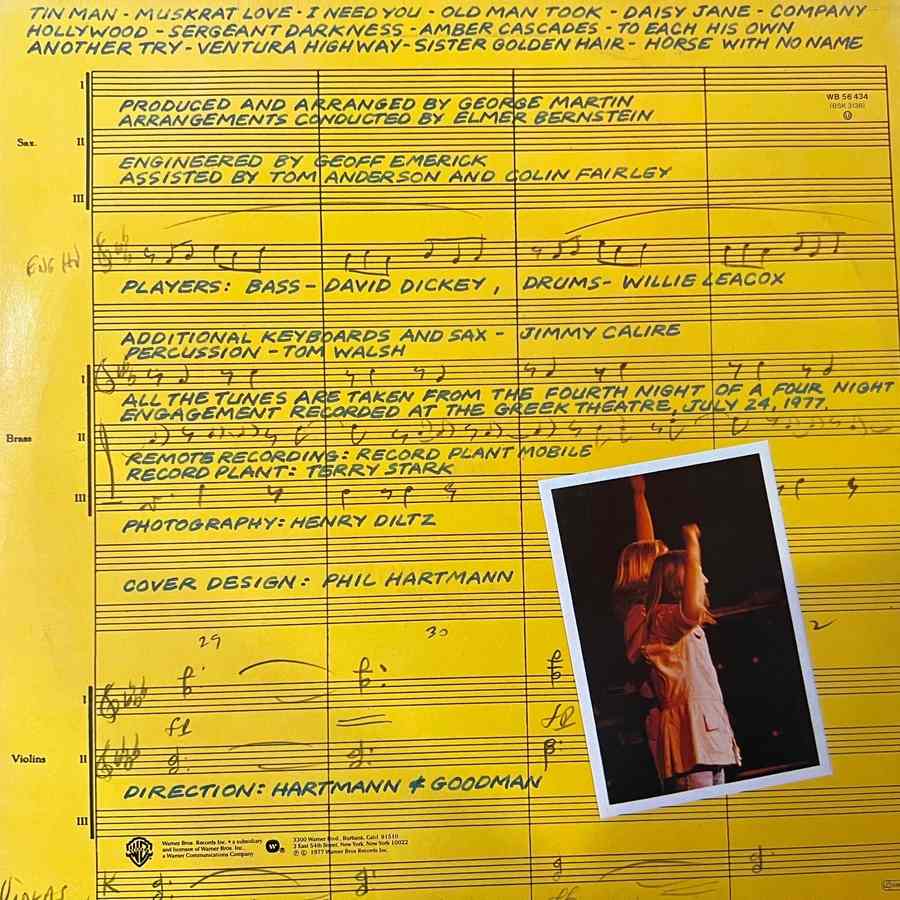 TIN MAN - MUSKRAT LOVE - I NEED YOU - OLD MAN TOOK - DAISY JANE - COMPANY
HOLLYWOOD - SERGEANT DARKNESS - AMBER CASCADES - TO EACH HIS OWN
ANOTHER TRY - VENTURA HIGHWAY - SISTER GOLDEN HAIR - HORSE WITH NO NAME
I
WB 56 434
(BSK 3136)
PRODUCED AND ARRANGED BY GEORGE MARTIN
ARRANGEMENTS CONDUCTED BY ELMER BERNSTEIN
Sax.
II
ENGINEERED BY GEOFF EMERICK
ASSISTED BY TOM ANDERSON AND COLIN FAIRLEY
III
ENG HN
PLAYERS: BASS - DAVID DICKEY, DRUMS - WILLIE LEACOX
ADDITIONAL KEYBOARDS AND SAX - JIMMY CALIRE
PERCUSSION - TOM WALSH
I
ALL THE TUNES ARE TAKEN FROM THE FOURTH NIGHT OF A FOUR NIGHT
ENGAGEMENT RECORDED AT THE GREEK THEATRE, JULY 24, 1977.
Brass
II
REMOTE RECORDING: RECORD PLANT MOBILE
RECORD PLANT: TERRY STARK
III
PHOTOGRAPHY: HENRY DILTZ
COVER DESIGN: PHIL HARTMANN
29
30
2
I
ff
ff
Violins
II
DIRECTION: HARTMANN & GOODMAN
III
WB
Warner Bros. Records Inc. • a subsidiary
and licensee of Warner Bros. Inc.
a Warner Communications Company
3300 Warner Blvd., Burbank, Calif. 91510
3 East 54th Street, New York, New York 10022
℗ © 1977 Warner Bros Records Inc.